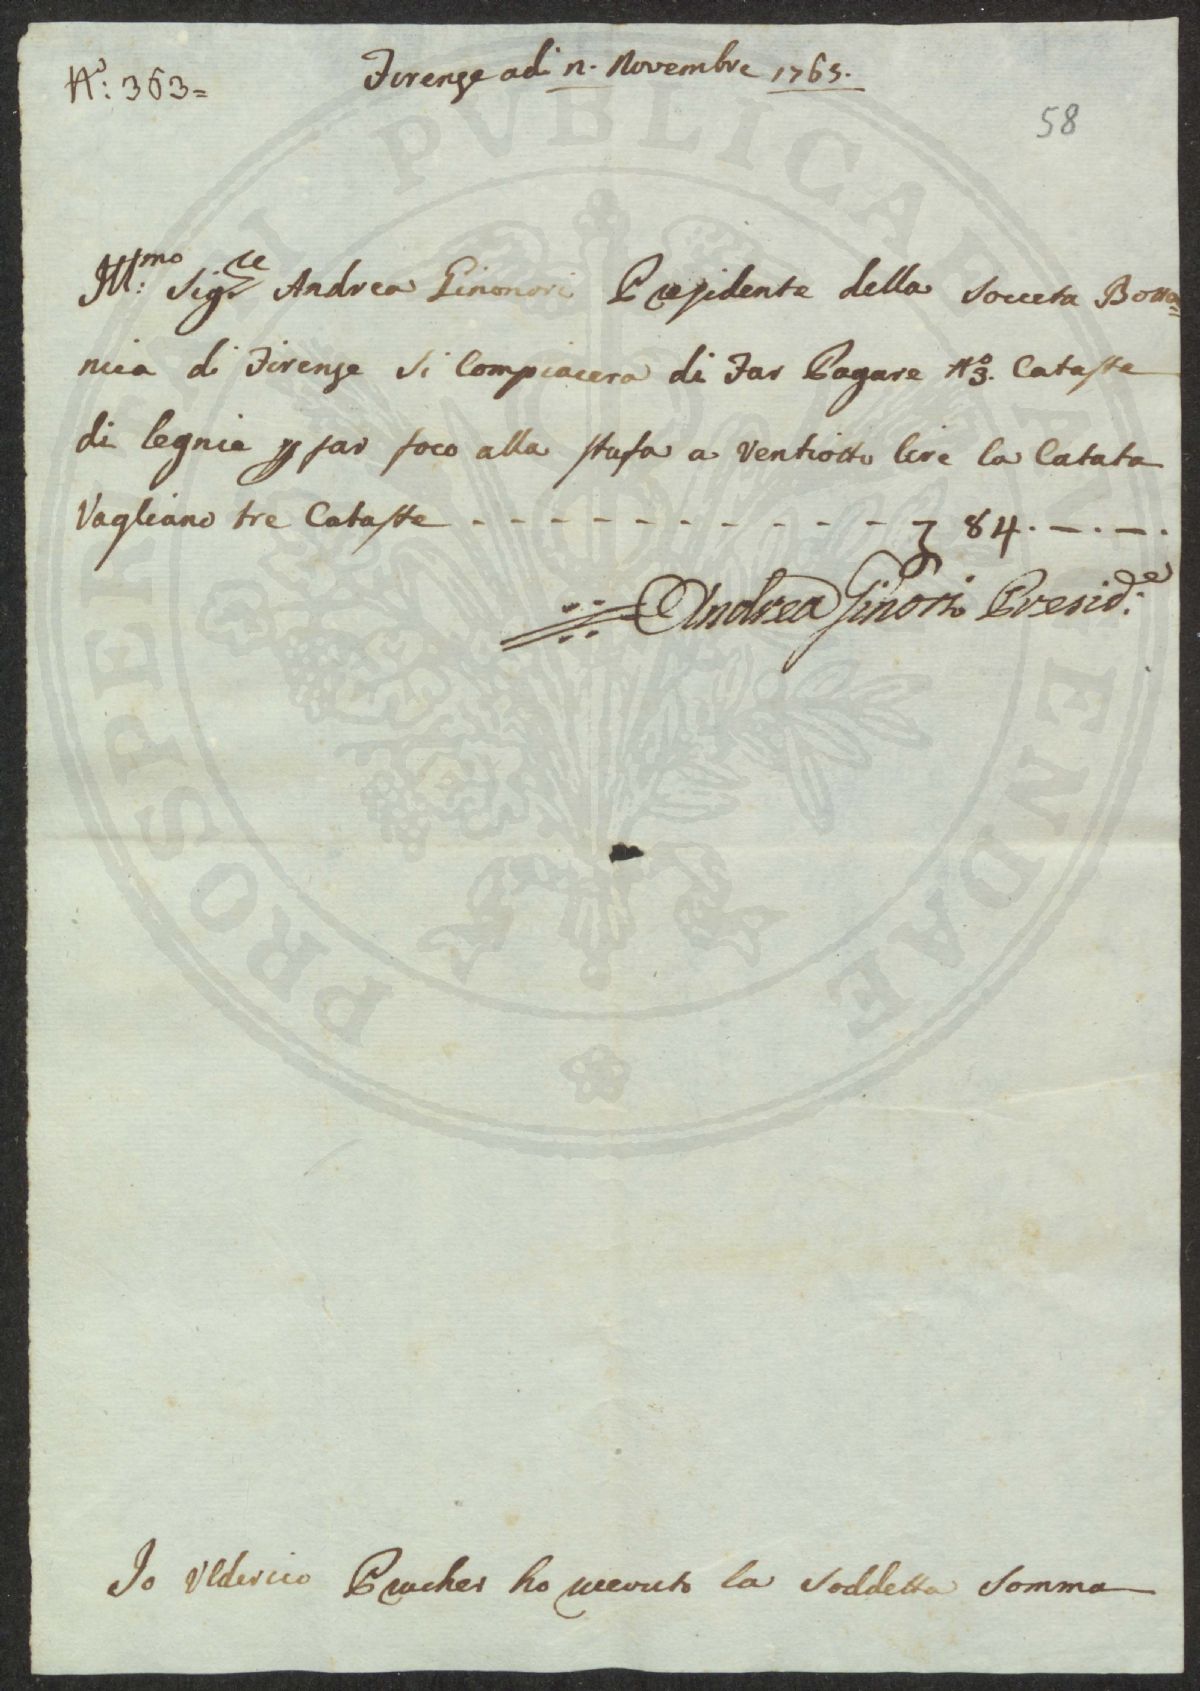 N.o: 363=
Firenze adi 11. Novembre 1765.
58
Ill:mo Sig:re Andrea Ginonori Presidente della Socceta Botta=
nica di Firenze Si Compiacera di Far Pagare No. 3. Cataste
di legnie p far foco alla stufa a Ventiotto lire la Catata
Vagliano tre Cataste - - - - - - - - - - - - 84. —. —.
Andrea Ginori Presid:e
Io Vlderico Prucher ho riceuto la Soddetta Somma
PROSPERITATI PVBLICAE AVGENDAE